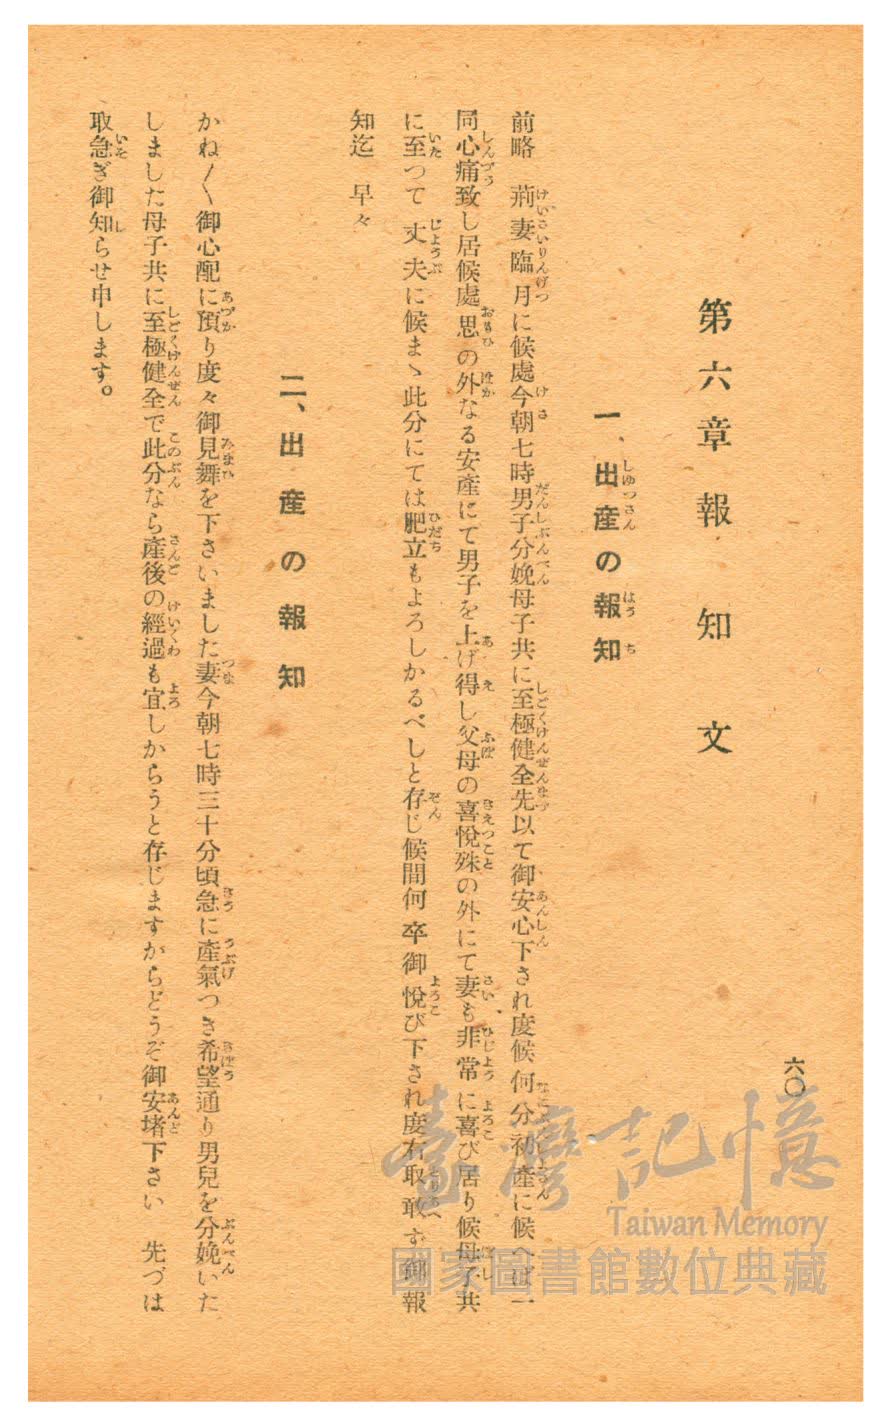 六〇
第六章報知文
一、出産の報知
前略　荊妻臨月に候處今朝七時男子分娩母子共に至極健全先以て御安心下され度候何分初產に候へば一
同心痛致し居候處思の外なる安產にて男子を上げ得し父母の喜悅殊の外にて妻も非常に喜び居り候母子共
に至つて丈夫に候まゝ此分にては肥立もよろしかるべしと存じ候間何卒御悅び下され度右取敢ず御報
知迄　早々
二、出産の報知
かね〴〵御心配に預り度々御見舞を下さいました妻今朝七時三十分頃急に產氣つき希望通り男兒を分娩いた
しました母子共に至極健全で此分なら產後の經過も宜しからうと存じますからどうぞ御安堵下さい　先づは
取急ぎ御知らせ申します。
臺灣記憶
Taiwan Memory
國家圖書館數位典藏